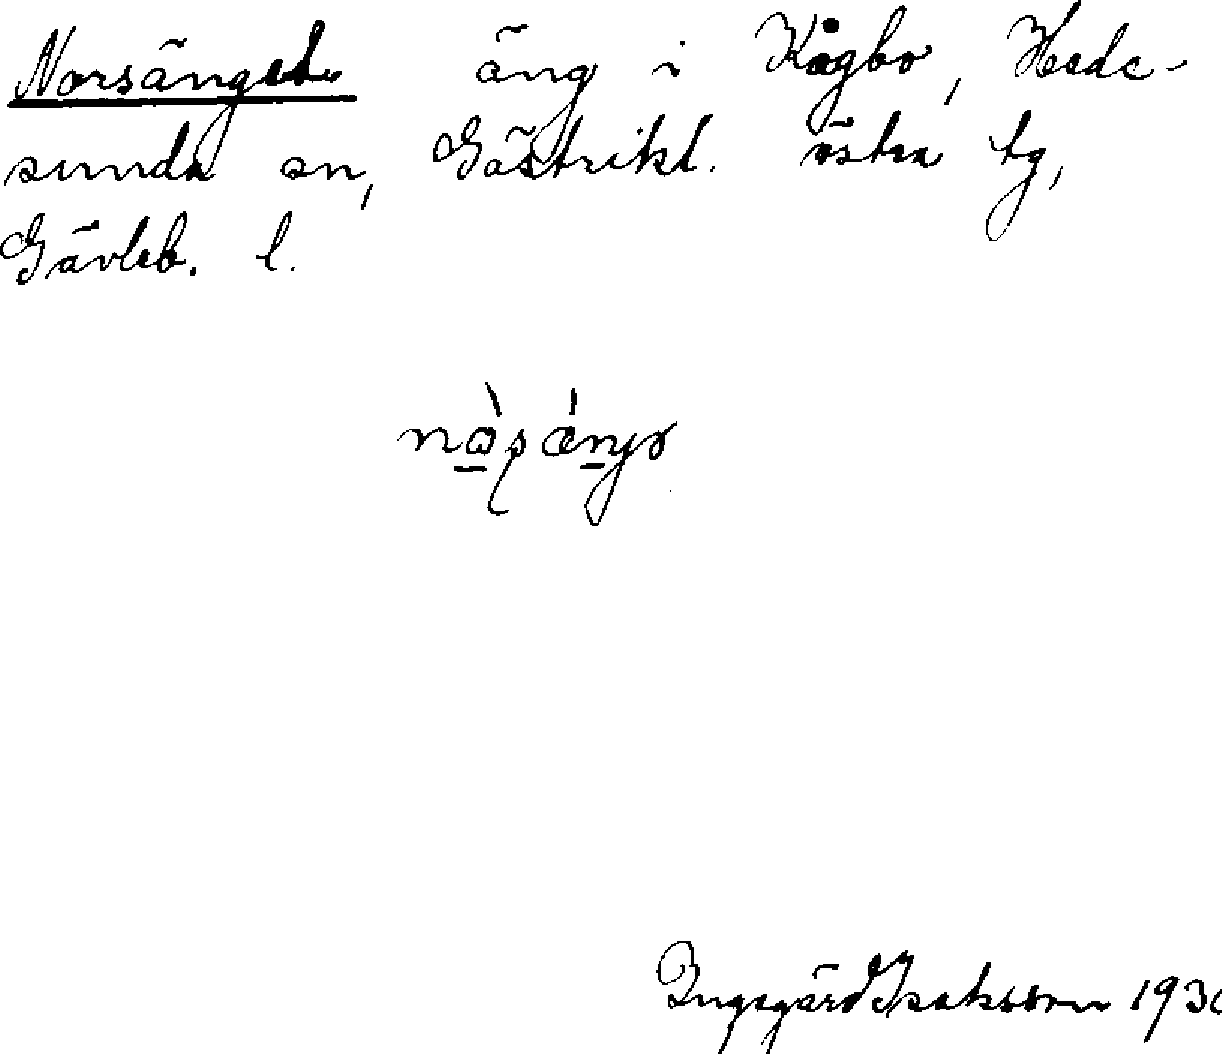 Norsänget äng i Kågbo, Hede-
sunda sn, Gästrikl. östra tg,
Gävleb. l.
Ingegärd Isaksson 193